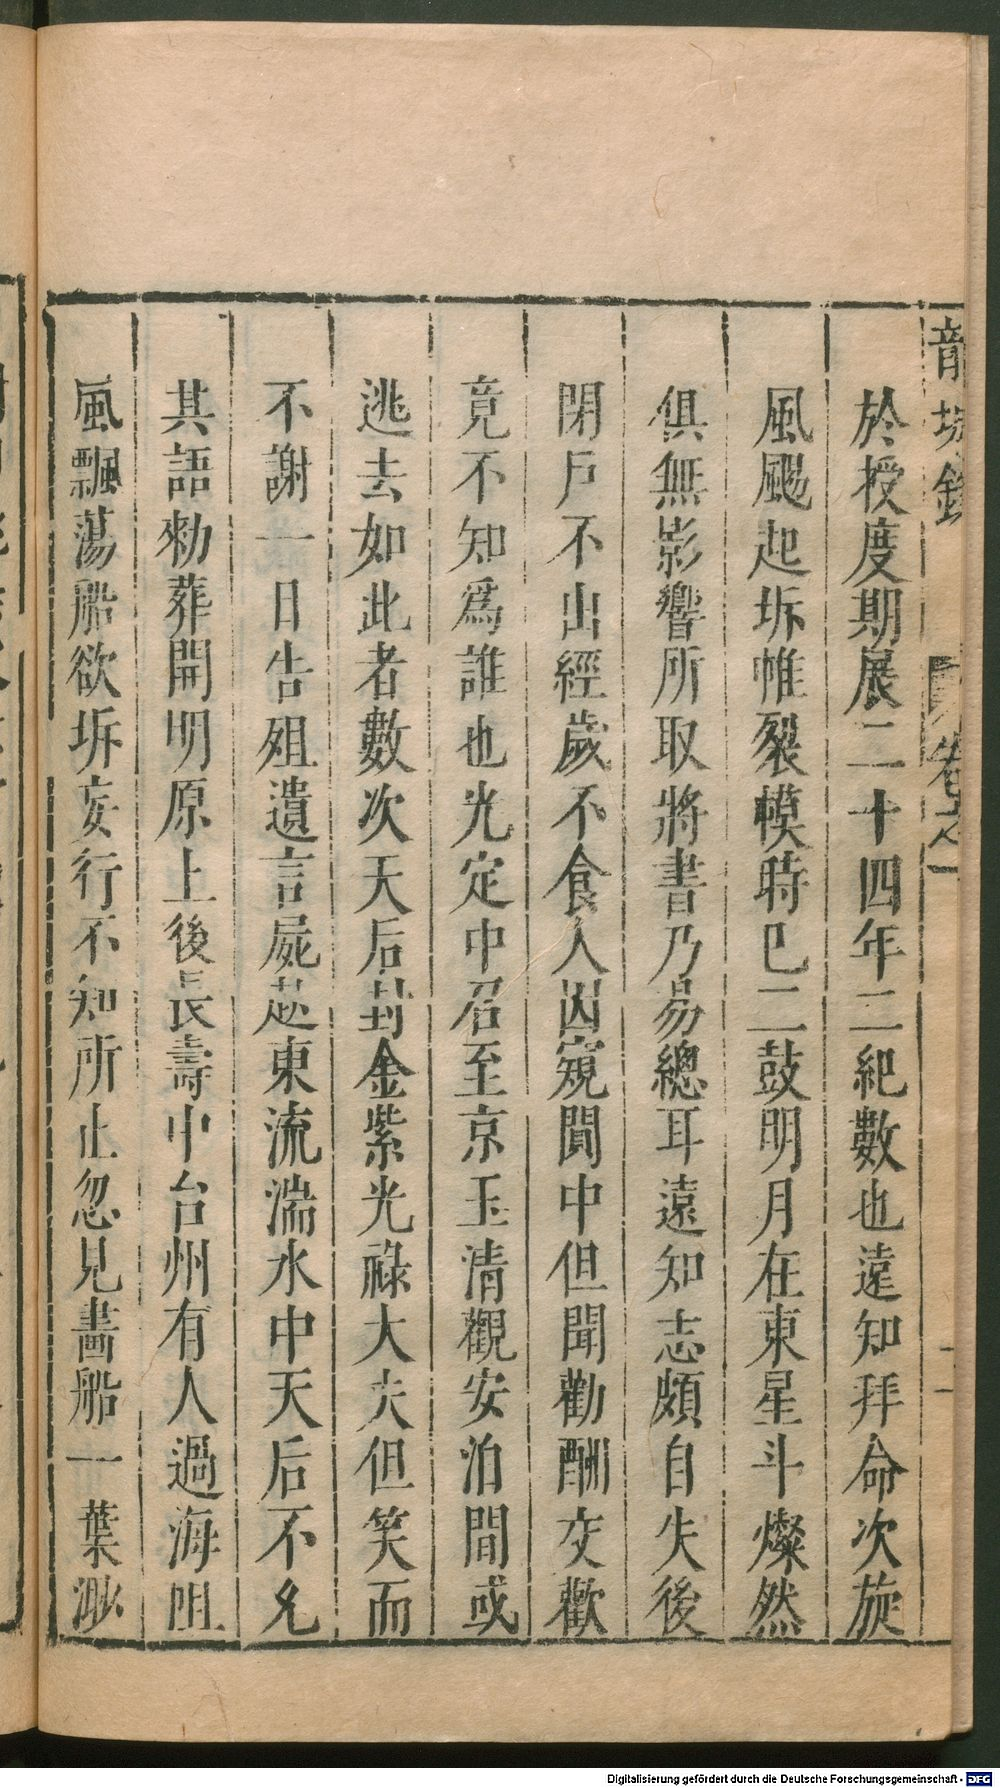 龍城錄 卷之 二
於授度期展二十四年二紀數也遠知拜命次旋
風颺起坼帷裂幙時已二鼓明月在東星斗燦然
俱無影響所取將書乃易總耳遠知志頗自失後
閉戶不出經歲不食人因窺聞中但聞勸酬交歡
竟不知爲誰也光定中召至京玉清觀安泊間或
逃去如此者數次天后封金紫光祿大夫但笑而
不謝一日告殂遺言屍赴東流湍水中天后不允
其語勑葬開明原上後長壽中台州有人過海阻
風飄蕩船欲坼妄行不知所止忽見畵船一葉渺
Digitalisierung gefördert durch die Deutsche Forschungsgemeinschaft - DFG